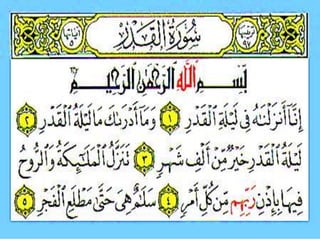 سُورَةُ الْقَدْرِ
بِسْمِ اللَّهِ الرَّحْمَٰنِ الرَّحِيمِ
إِنَّا أَنزَلْنَٰهُ فِي لَيْلَةِ الْقَدْرِ ١ وَمَا أَدْرَىٰكَ مَا لَيْلَةُ الْقَدْرِ ٢
لَيْلَةُ الْقَدْرِ خَيْرٌ مِّنْ أَلْفِ شَهْرٍ ٣ تَنَزَّلُ الْمَلَٰٓئِكَةُ وَالرُّوحُ
فِيهَا بِإِذْنِ رَبِّهِم مِّن كُلِّ أَمْرٍ ٤ سَلَٰمٌ هِيَ حَتَّىٰ مَطْلَعِ الْفَجْرِ ٥